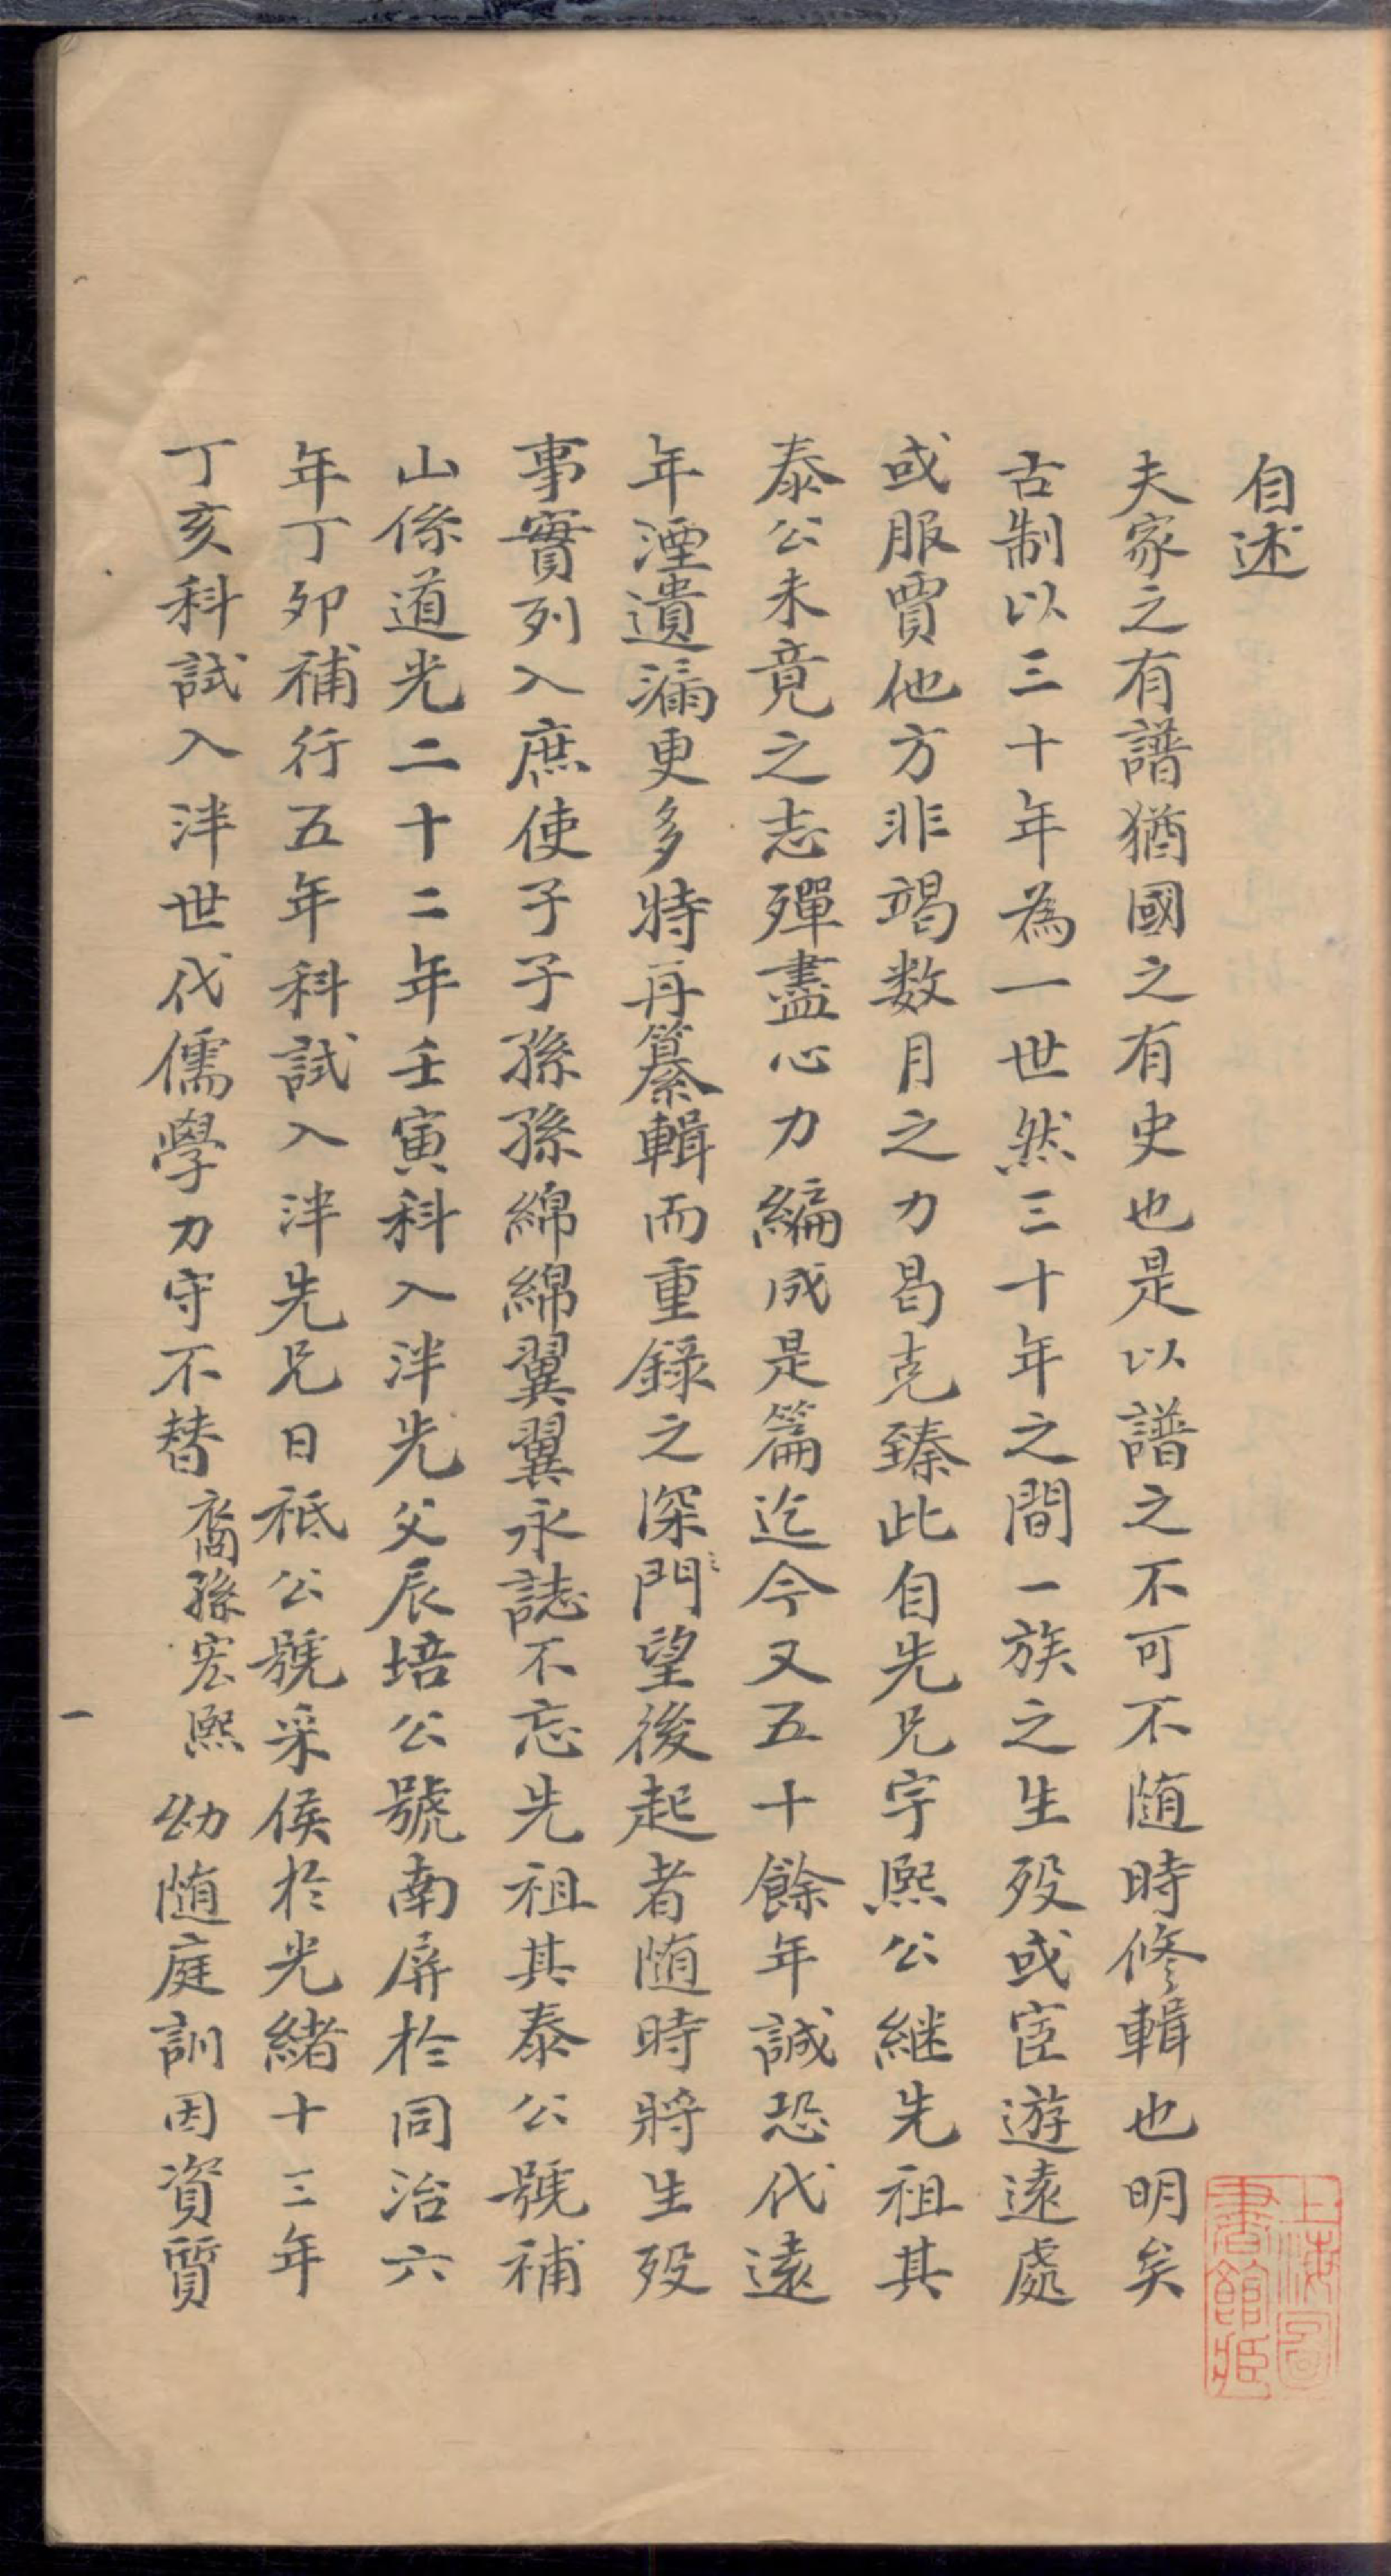 自述
夫家之有譜猶國之有史也是以譜之不可不随時修輯也明矣
古制以三十年為一世然三十年之間一族之生殁或宦遊遠處
或服賈他方非竭数月之力曷克臻此自先兄宇熙公継先祖其
泰公未竟之志殫盡心力編成是篇迄今又五十餘年誠恐代遠
年湮遺漏更多特再纂輯而重錄之深門望後起者随時將生殁
事實列入庶使子子孫孫綿綿翼翼永誌不忘先祖其泰公號補
山係道光二十二年壬寅科入泮先父辰培公號南屏於同治六
年丁夘補行五年科試入泮先兄日祗公號采侯於光緒十三年
丁亥科試入泮世代儒學力守不替裔孫宏熙幼随庭訓因資質
一
上海圖
書館藏